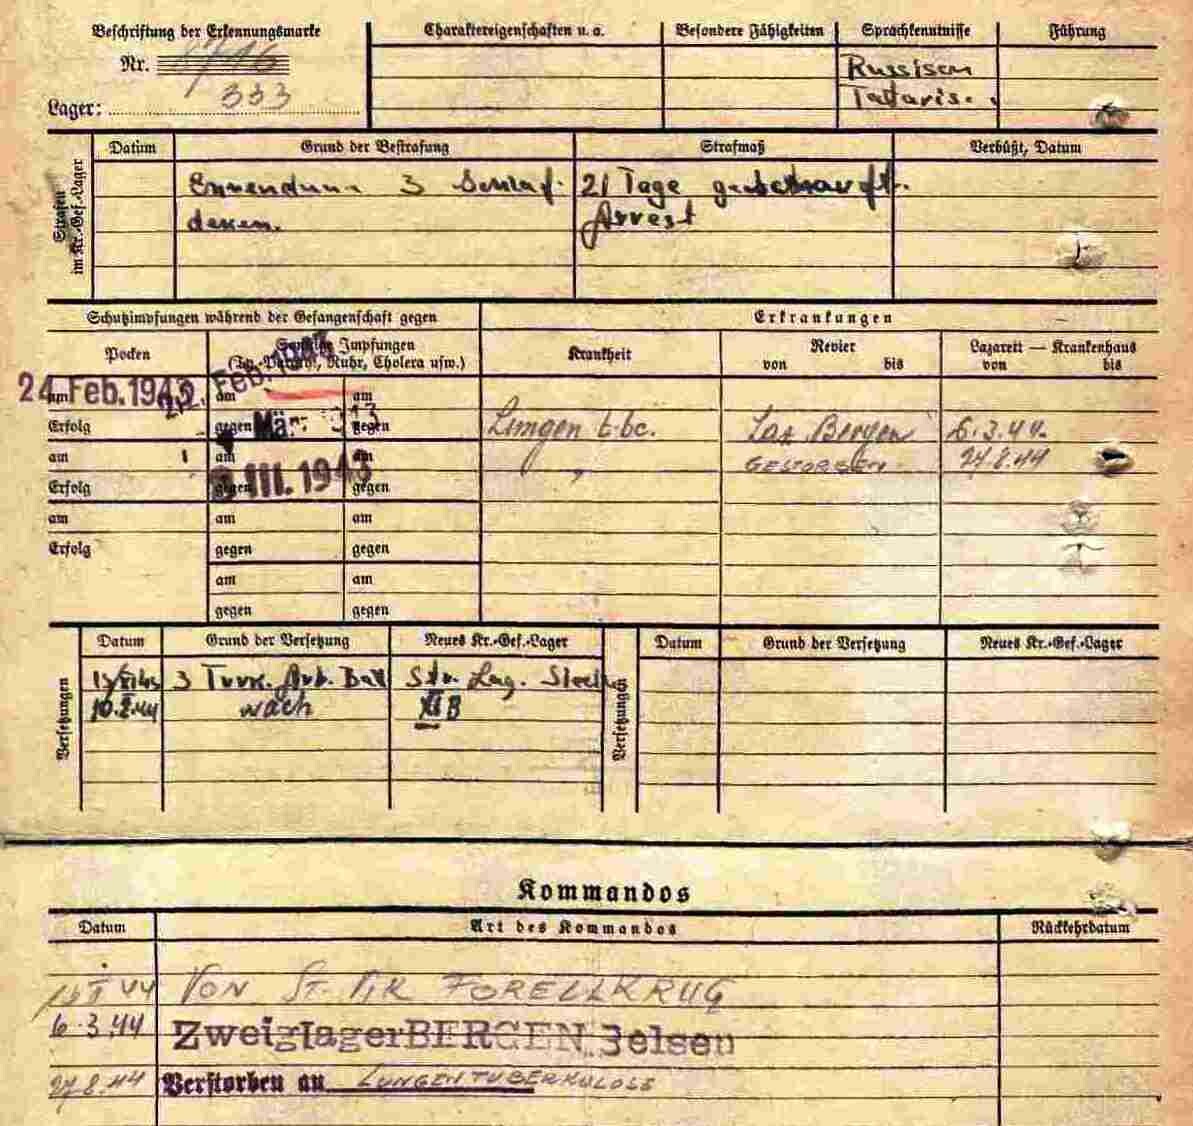 Beschriftung der Erkennungsmarke
Nr.
Lager: 333
Charaktereigenschaften u. a.
Besondere Fähigkeiten
Sprachkenntnisse
Russisch
Tataris.
Führung
Strafen im Kr.-Gef.-Lager
Datum
Grund der Bestrafung
Strafmaß
Verbüßt, Datum
3 Schlaf-
decken.
21 Tage
Arrest
Schutzimpfungen während der Gefangenschaft gegen
Erkrankungen
Pocken
Sonstige Impfungen
(Ty.-Paratyph, Ruhr, Cholera usw.)
Krankheit
Revier
von bis
Lazarett — Krankenhaus
von bis
24. Feb. 1943
am am am
Erfolg gegen gegen
März 1943
Lungen tbc. Laz Bergen 6.3.44.
am am am
" GESTORBEN 27.8.44
Erfolg gegen gegen
III. 1943
am am am
Erfolg gegen gegen
am am
gegen gegen
Versetzungen
Datum Grund der Versetzung Neues Kr.-Gef.-Lager
3 Turk. Arb. Bat
10.2.44 nach XI B
Versetzungen
Datum Grund der Versetzung Neues Kr.-Gef.-Lager
Kommandos
Datum Art des Kommandos Rückkehrdatum
VON FORELLKRUG
6.3.44 Zweiglager BERGEN Belsen
27.8.44 Verstorben an LUNGENTUBERKULOSE